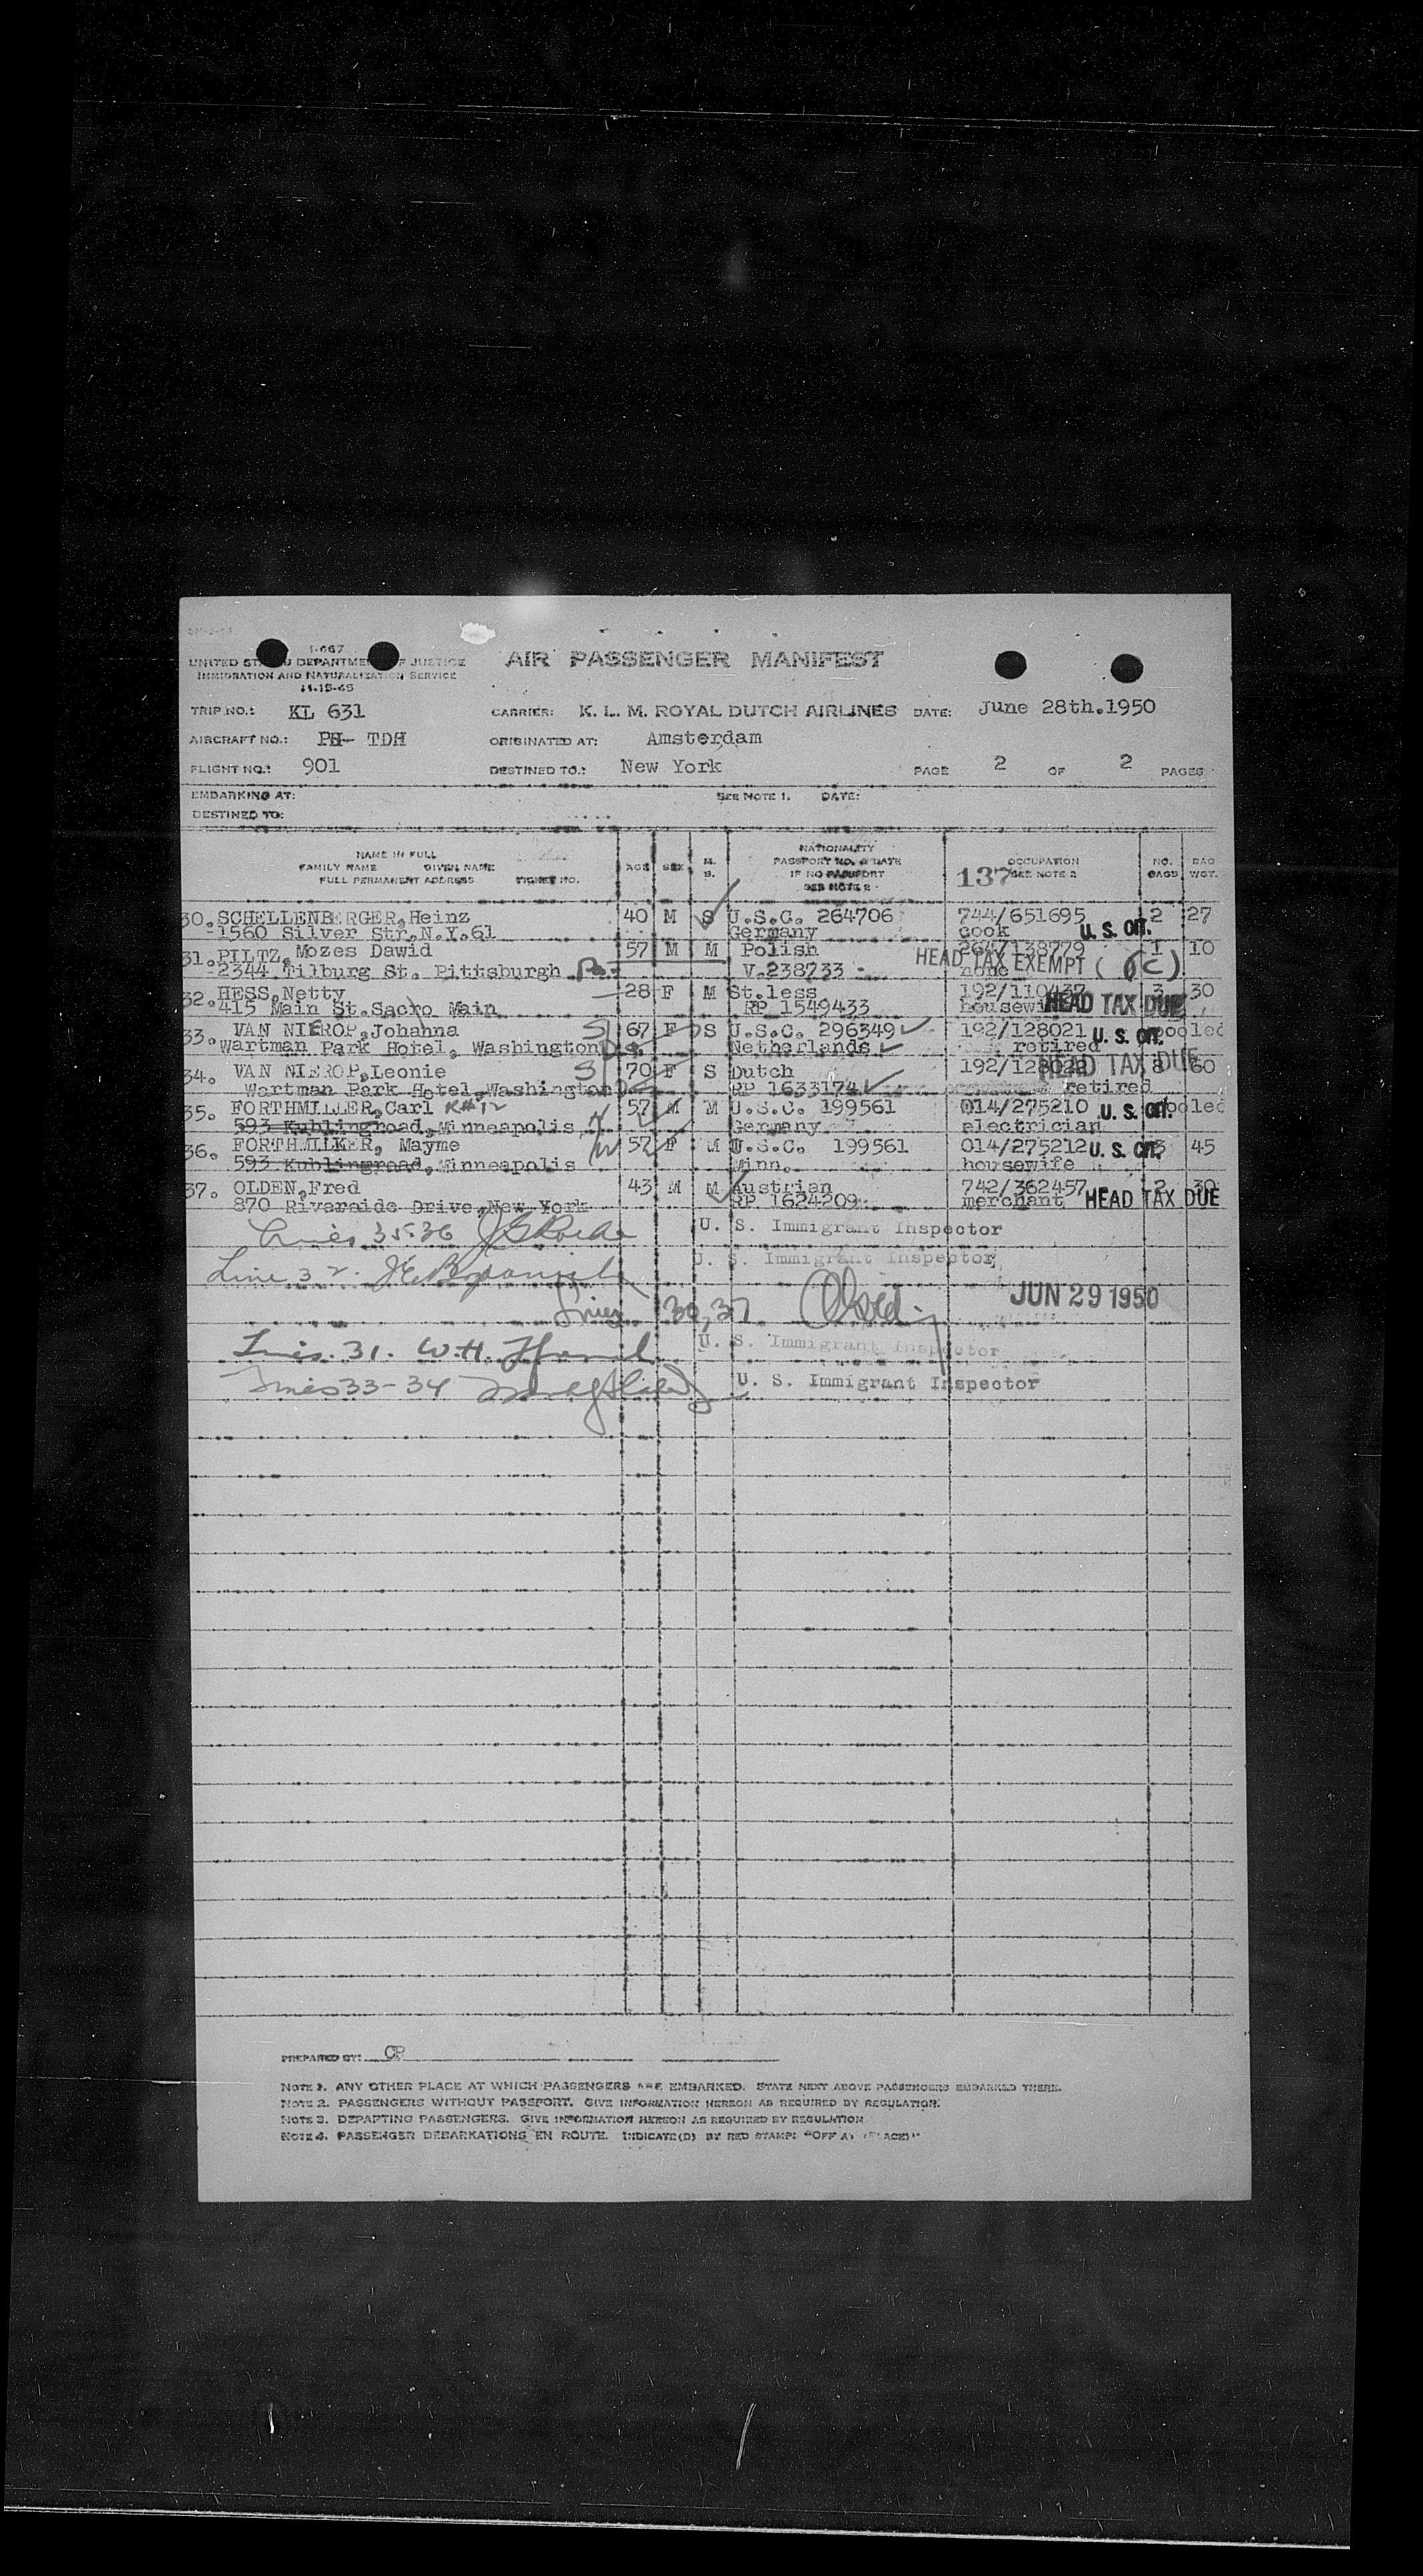 I-467
UNITED ST DEPARTME F JUSTICE
IMMIGRATION AND NATURALIZATION SERVICE
11-15-45
AIR PASSENGER MANIFEST
TRIP NO.: KL 631 CARRIER: K. L. M. ROYAL DUTCH AIRLINES DATE: June 28th.1950
AIRCRAFT NO.: PH- TDH ORIGINATED AT: Amsterdam
FLIGHT NO.: 901 DESTINED TO.: New York PAGE 2 OF 2 PAGES
EMBARKING AT: SEE NOTE 1. DATE:
DESTINED TO:
NAME IN FULL
FAMILY NAME GIVEN NAME
FULL PERMANENT ADDRESS TICKET NO.
AGE SEX M. S.
NATIONALITY
PASSPORT NO. & DATE
IF NO PASSPORT
SEE NOTE 2
137 OCCUPATION
SEE NOTE 2
NO. BAGS BAG WGT.
30. SCHELLENBERGER,Heinz 40 M S U.S.C. 264706 744/651695 2 27
1560 Silver Str.N.Y.61 Germany cook U. S. CIT.
31. PILTZ, Mozes Dawid 57 M M Polish 264/138779 1 10
2344 Tilburg St. Pittsburgh Pa. V.238733 none HEAD TAX EXEMPT (
32. HESS,Netty 28 F M St.less 192/110437 3 30
415 Main St.Sacro Main RP 1549433 housewi HEAD TAX DUE
33. VAN NIEROP,Johanna 67 F S U.S.C. 296349 192/128021 U. S. CIT. pooled
Wartman Park Hotel, Washington Netherlands retired
34. VAN NIEROP,Leonie 70 F S Dutch 192/128022 HEAD TAX DUE 8 60
Wartman Park Hotel,Washington RP 1633174 retired
35. FORTHMILLER,Carl 57 M M U.S.C. 199561 014/275210 U. S. CIT. pooled
593 Kuhlingroad,Minneapolis Germany electrician
36. FORTHMILKER, Mayme 57 F M U.S.C. 199561 014/275212 U. S. CIT. 3 45
593 Kuhlingroad,Minneapolis Minn. housewife
37. OLDEN,Fred 43 M M Austrian 742/362457 2 30
870 Riverside Drive,New York RP 1624209 merchant HEAD TAX DUE
Lines 35-36 U. S. Immigrant Inspector
Line 32. U. S. Immigrant Inspector
JUN 29 1950
Lines 30,37
Lines. 31. W.H. U. S. Immigrant Inspector
Lines 33-34 U. S. Immigrant Inspector
PREPARED BY: CP
NOTE 1. ANY OTHER PLACE AT WHICH PASSENGERS ARE EMBARKED. STATE NEXT ABOVE PASSENGERS EMBARKED THERE.
NOTE 2. PASSENGERS WITHOUT PASSPORT. GIVE INFORMATION HEREON AS REQUIRED BY REGULATION.
NOTE 3. DEPARTING PASSENGERS. GIVE INFORMATION HEREON AS REQUIRED BY REGULATION
NOTE 4. PASSENGER DEBARKATIONS EN ROUTE. INDICATE(D) BY RED STAMP: "OFF AT (PLACE)"